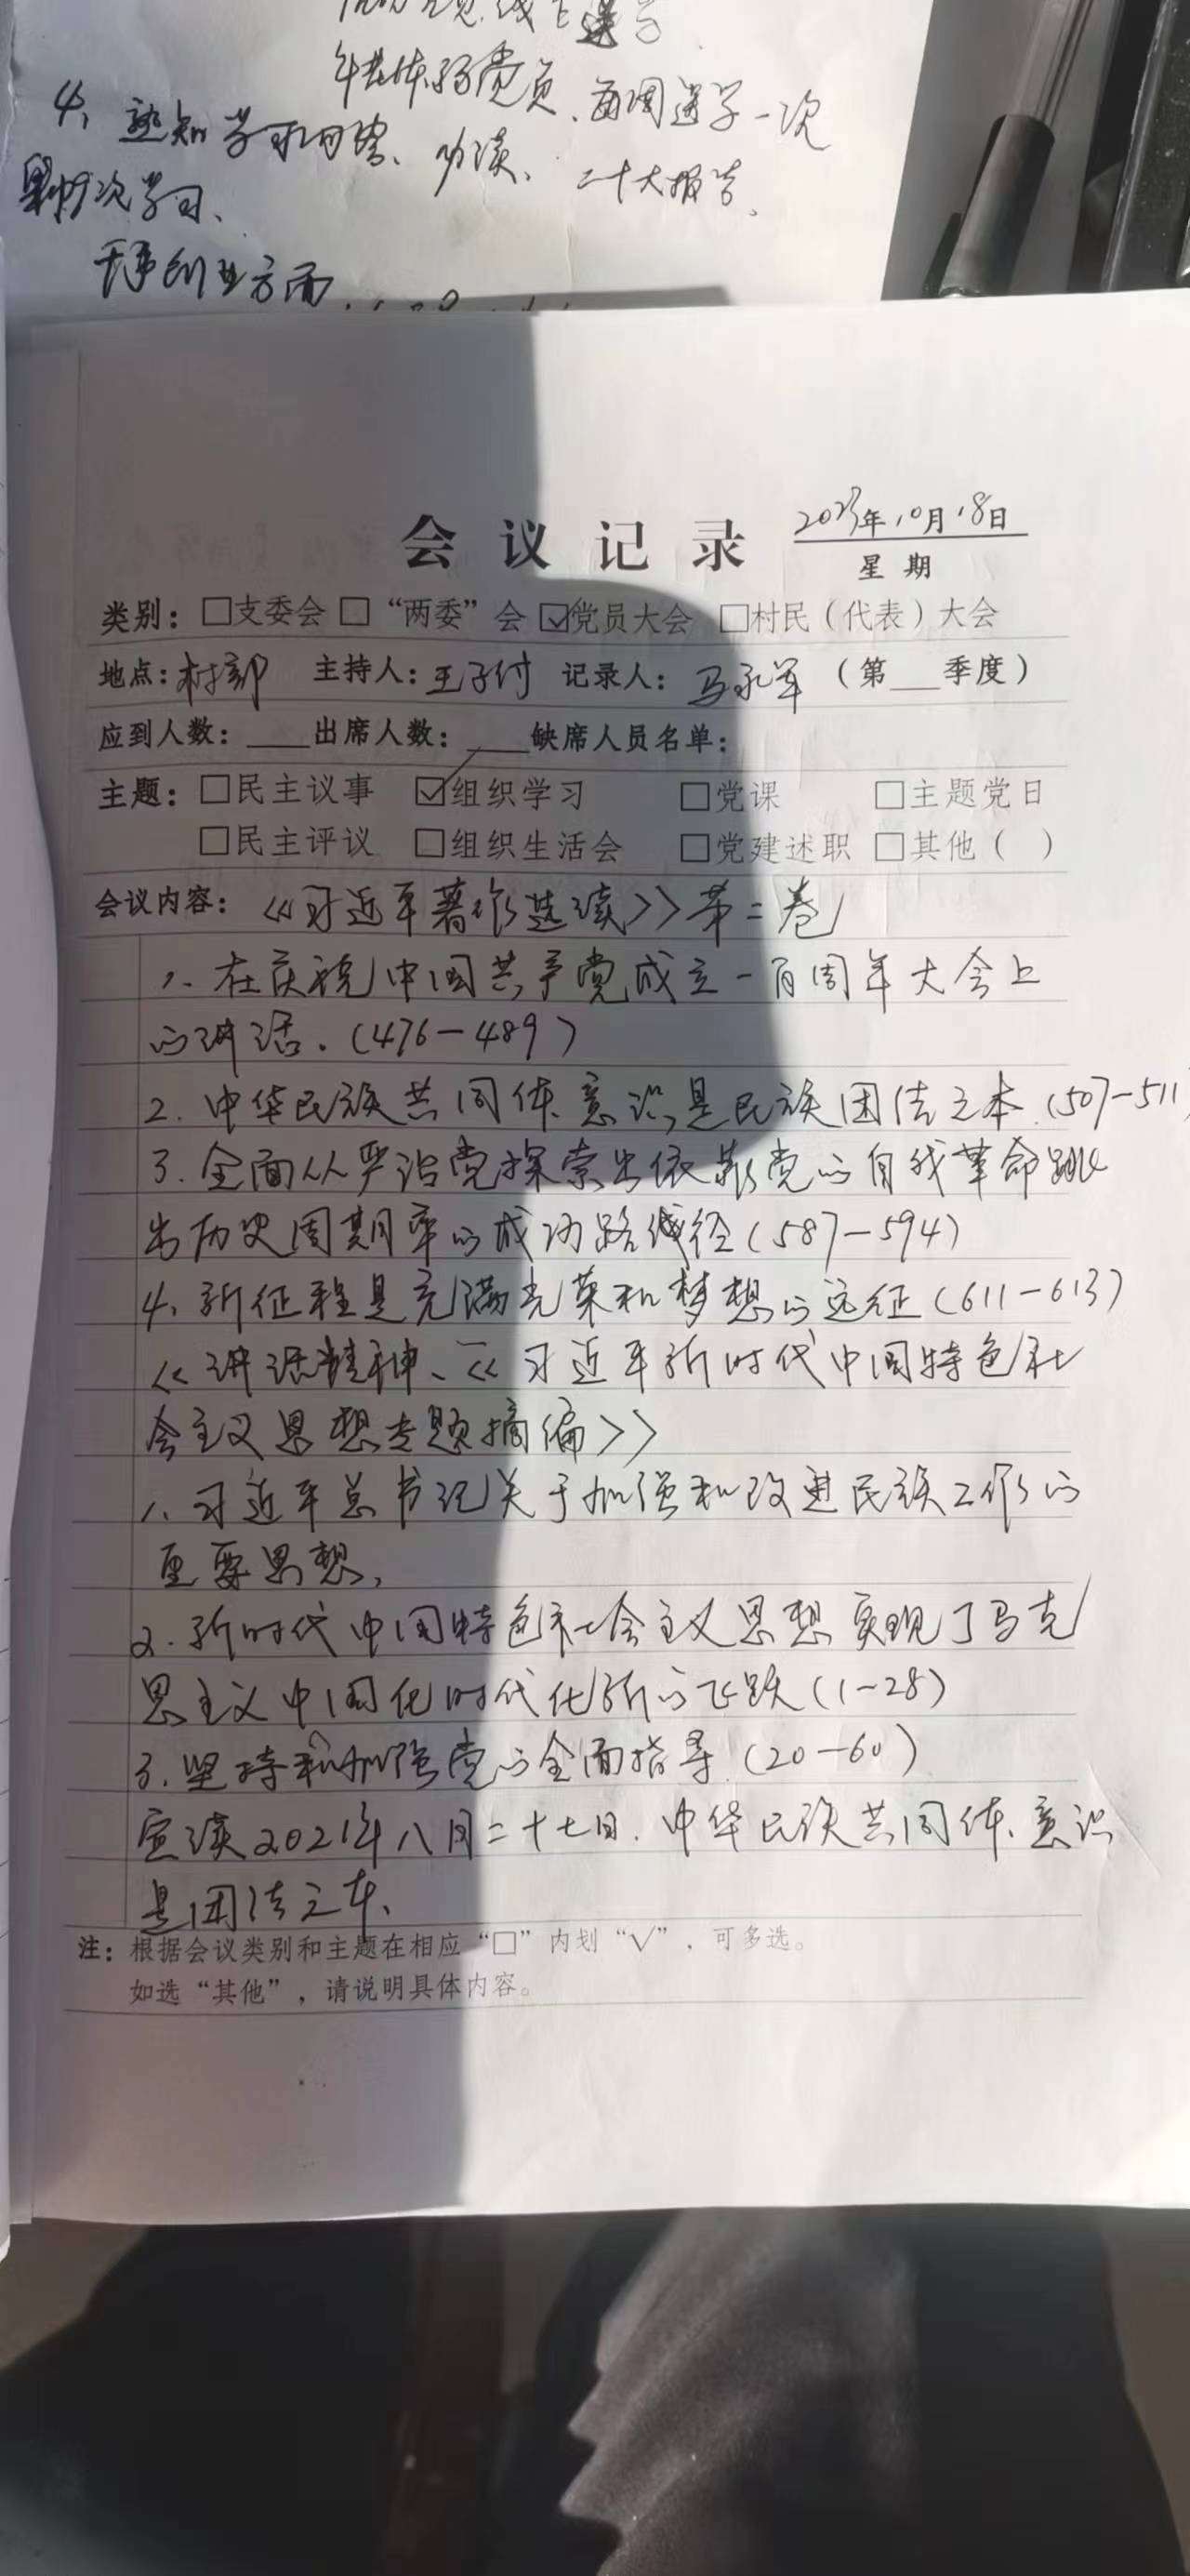 年老体弱党员、每周送学一次
4、熟知学习内容、功读、二十大报告、
次学习、
干事创业方面
会议记录 2023年10月18日
星期
类别：□支委会 □“两委”会 ☑党员大会 □村民（代表）大会
地点：村部 主持人：王子付 记录人：马永军（第 季度）
应到人数： 出席人数： 缺席人员名单：
主题：□民主议事 ☑组织学习 □党课 □主题党日
□民主评议 □组织生活会 □党建述职 □其他（ ）
会议内容：《习近平著作选读》第二卷
1、在庆祝中国共产党成立一百周年大会上
的讲话。(476-489)
2.中华民族共同体意识是民族团结之本.(507-511)
3.全面从严治党探索出依靠党的自我革命跳
出历史周期率的成功路线径(587-594)
4、新征程是充满光荣和梦想的远征(611-613)
《讲话精神、《习近平新时代中国特色社
会主义思想专题摘编》
1、习近平总书记关于加强和改进民族工作的
重要思想,
2.新时代中国特色社会主义思想实现了马克
思主义中国化时代化新的飞跃(1-28)
3.坚持和加强党的全面指导.(20-60)
宣读2021年八月二十七日.中华民族共同体意识
是团结之本、
注：根据会议类别和主题在相应“□”内划“√”，可多选。
如选“其他”，请说明具体内容。